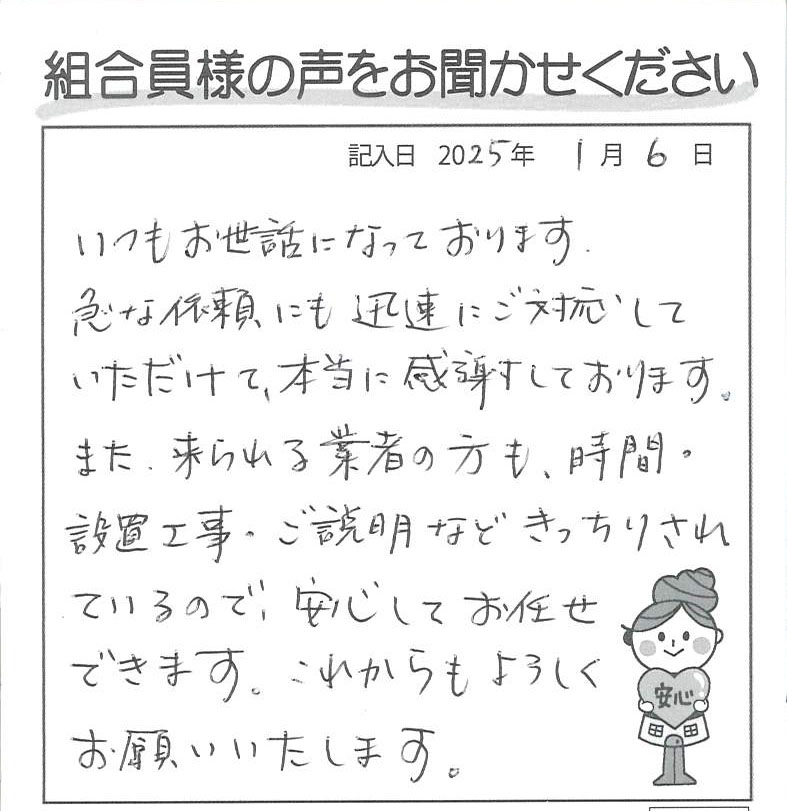 組合員様の声をお聞かせください
記入日 2025年 1月 6日
いつもお世話になっております.
急な依頼にも迅速にご対応して
いただけて、本当に感謝しております。
また、来られる業者の方も、時間・
設置工事・ご説明などきっちりされ
ているので、安心してお任せ
できます。これからもよろしく
お願いいたします。
安心